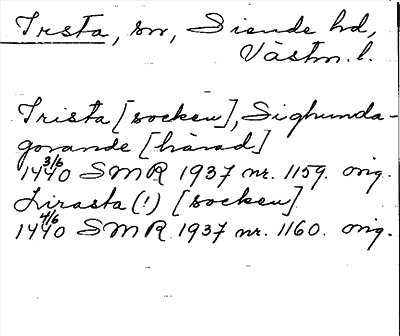 Irsta, sn, Siende hd,
Västm. l.
Irista [socken], Sighunda-
gorande [härad]
1440 3/6 SMR 1937 nr. 1159. orig.
Lirasta (!) [socken]
1440 4/6 SMR 1937 nr. 1160. orig.